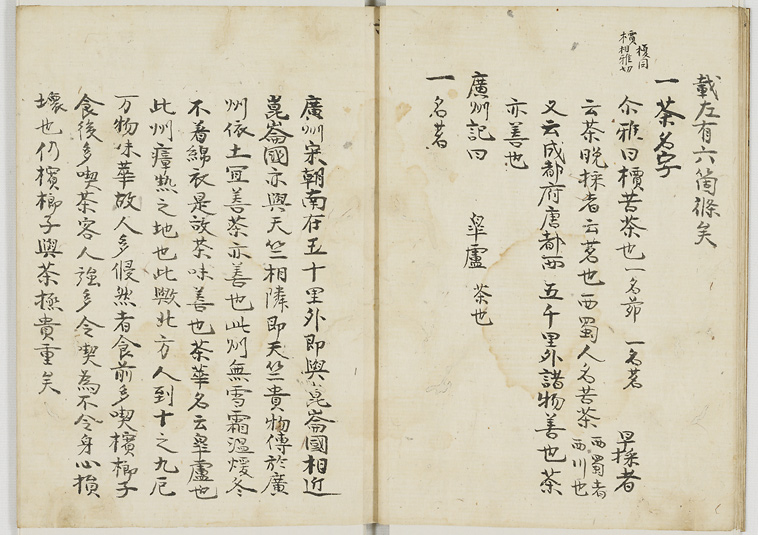 載左有六箇條矣
一 茶名字
檟同
檟相雅切
尒雅曰檟苦茶也 一名茆 一名茗 早採者
云茶晩採者云茗也西蜀人名苦茶 西蜀者 西川也
又云成都府唐都西五千里外諸物善也茶
亦善也
廣州記曰 皐盧 茶也
一名茗
廣州宋朝南在五十里外即與崑崙國相近
崑崙國亦與天竺相隣即天竺貴物傳於廣
州依土宜善茶亦善也此州無雪霜温煖冬
不着綿衣是故茶味善也茶華名云皐盧也
此州瘴熱之地也此欤北方人到十之九厄
万物味華故人多侵然者食前多喫檳榔子
食後多喫茶客人強多令喫為不令身心損
壞也仍檳榔子與茶極貴重矣